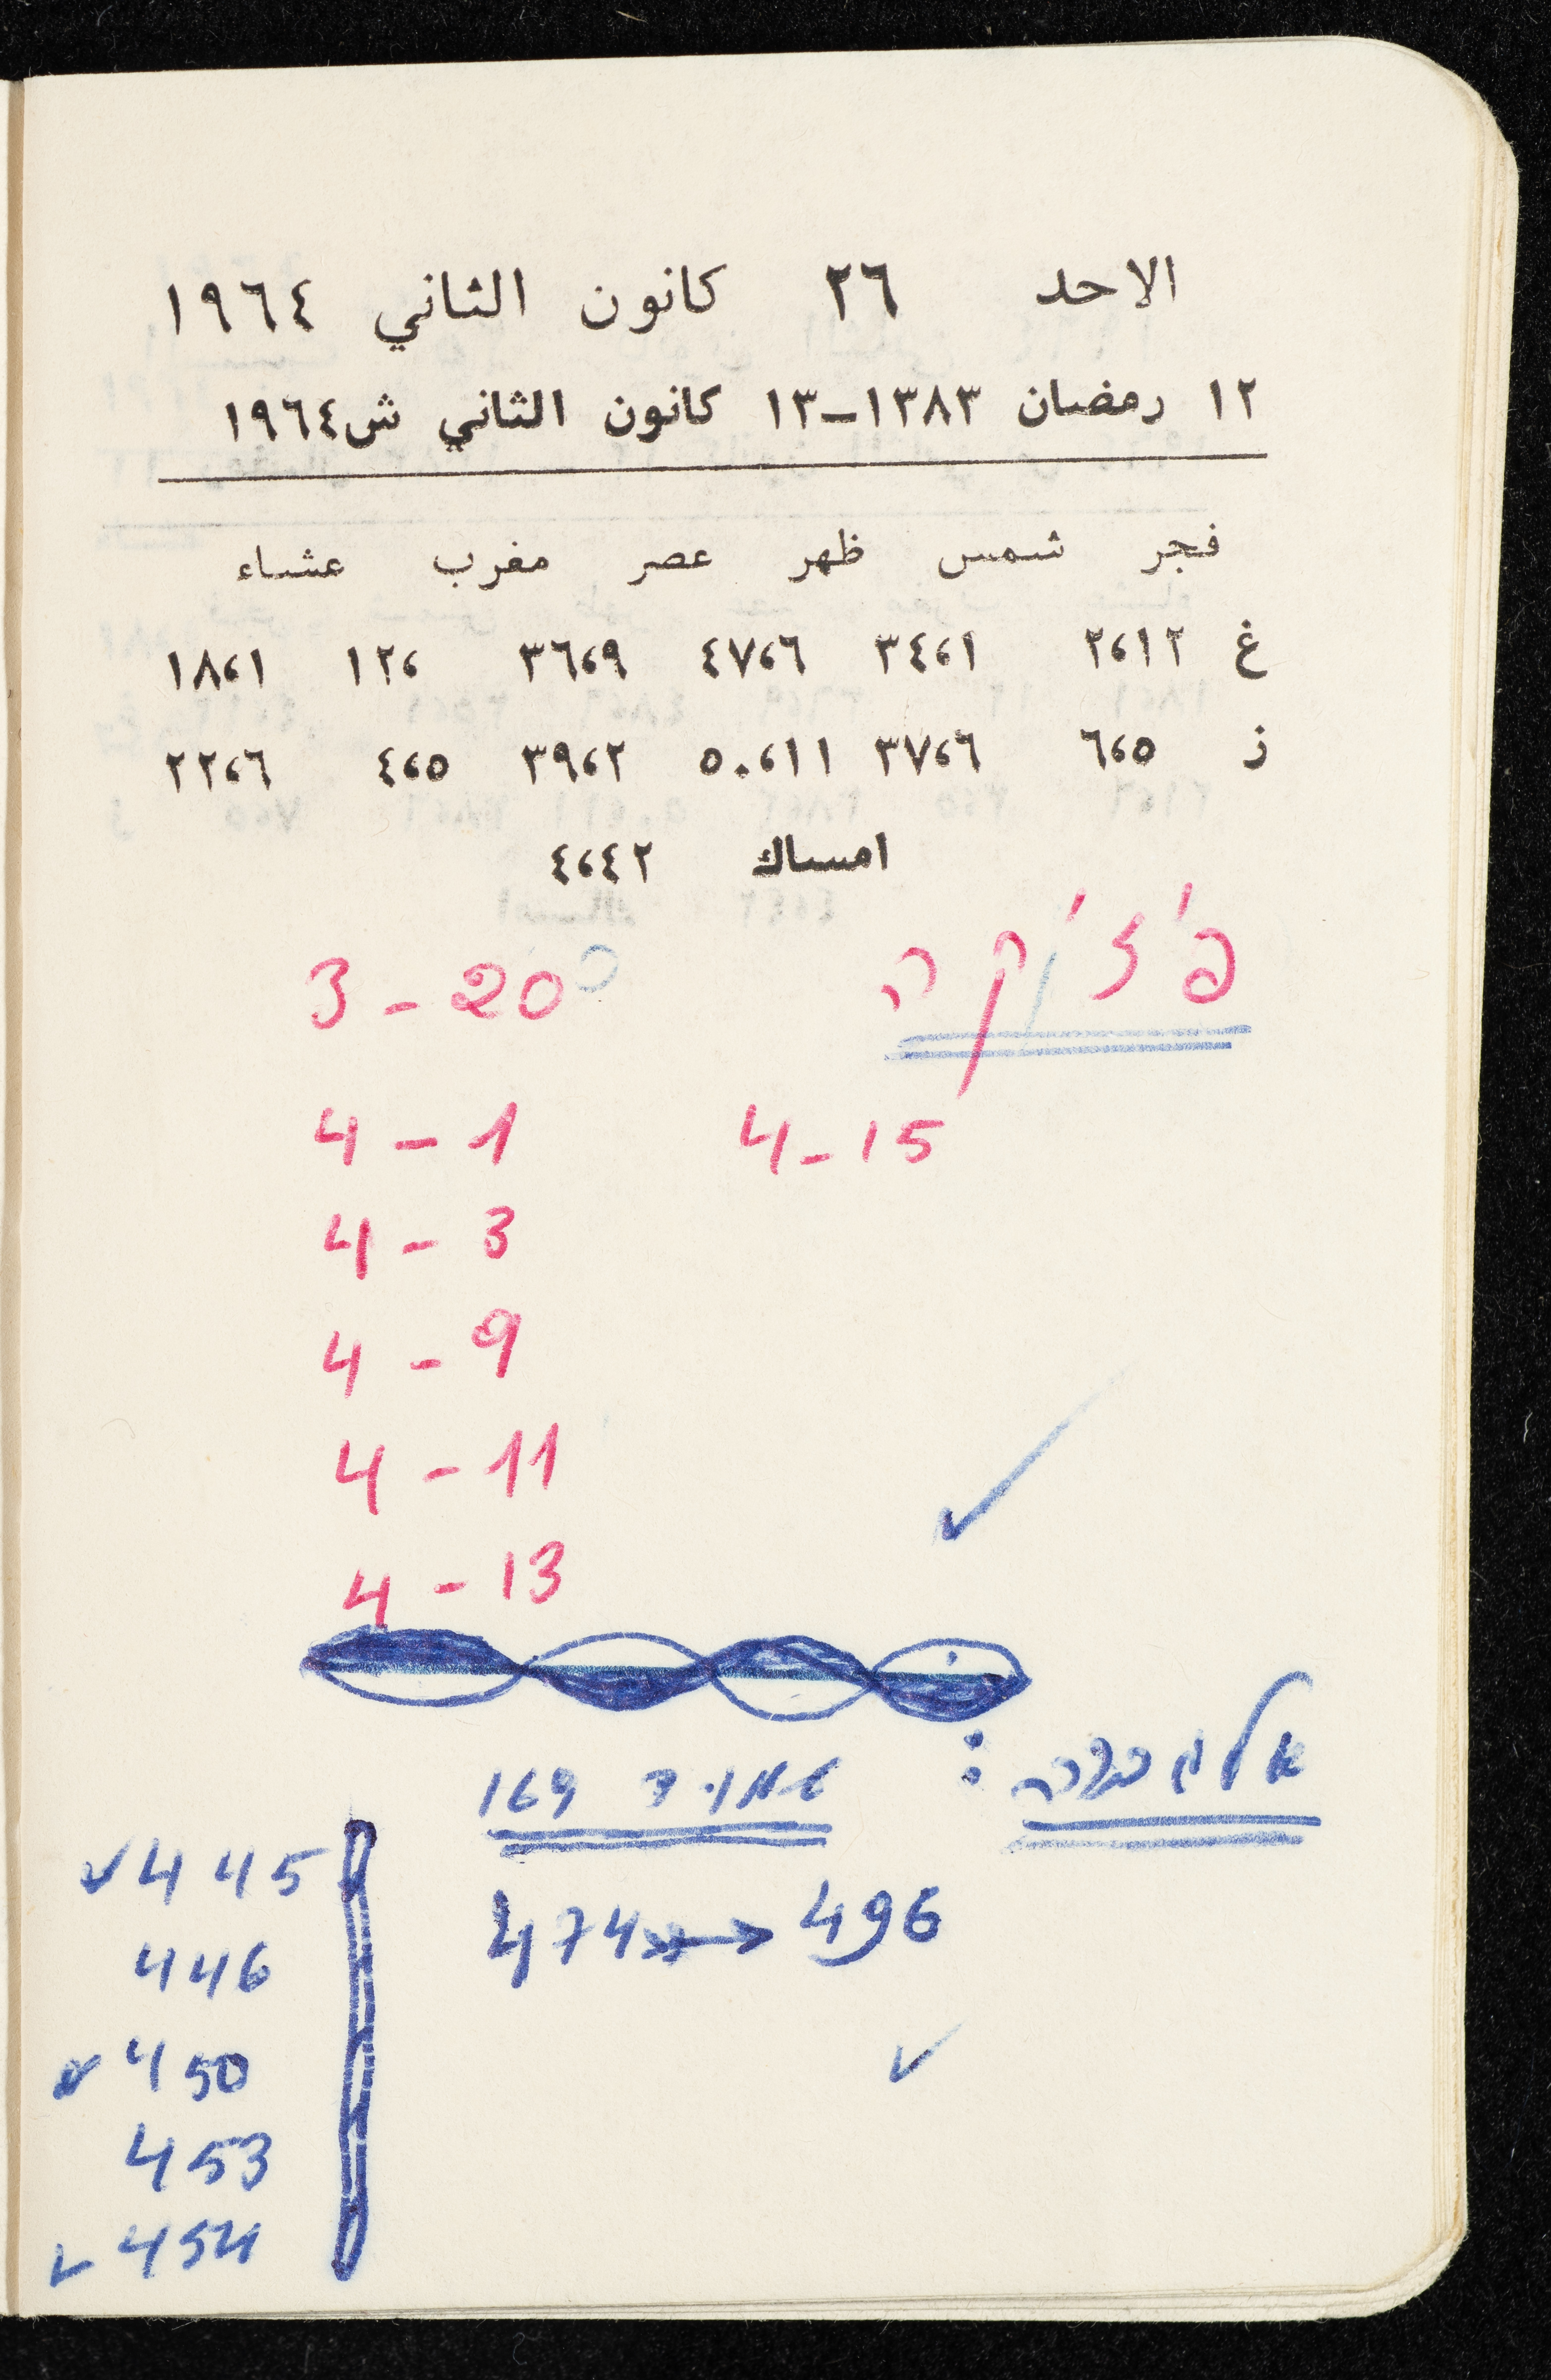 الاحد ٢٦ كانون الثاني ١٩٦٤
١٢ رمضان ١٣٨٣–١٣ كانون الثاني ش١٩٦٤
فجر شمس ظهر عصر مغرب عشاء
غ ٢،١٢ ٣٤،١ ٤٧،٦ ٣٦،٩ ١٢، ١٨،١
ز ٦،٥ ٣٧،٦ ٥٠،١١ ٣٩،٢ ٤،٥ ٢٢،٦
امساك ٤،٤٢
פיזיקה
3 - 20
4 - 1
4 - 15
4 - 3
4 - 9
4 - 11
4 - 13
אלגברה :
עמוד 169
474 → 496
✓ 445
446
✓ 450
453
✓ 454